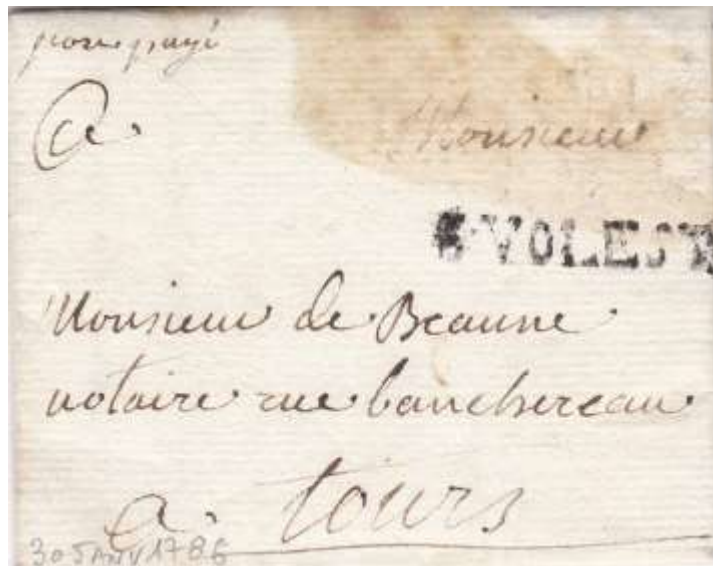 port payé
a Monsieur
VOLEST
Monsieur de Beaune
notaire rue banchereau
a tours
30 JANV 1786